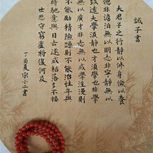 誡子書
夫君子之行靜以修身儉以養
德非澹泊無以明志非寧靜無以
致遠夫學須靜也才須學也非學
無以廣才非志無以成學淫漫則
不能勵精險躁則不能冶性年與
時馳意與日去遂成枯落多不接
世悲守窮廬將復何及